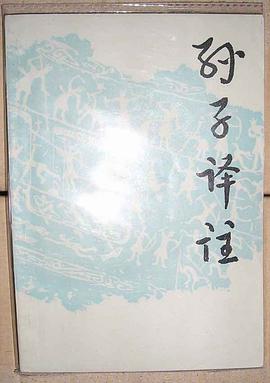 孙子译注